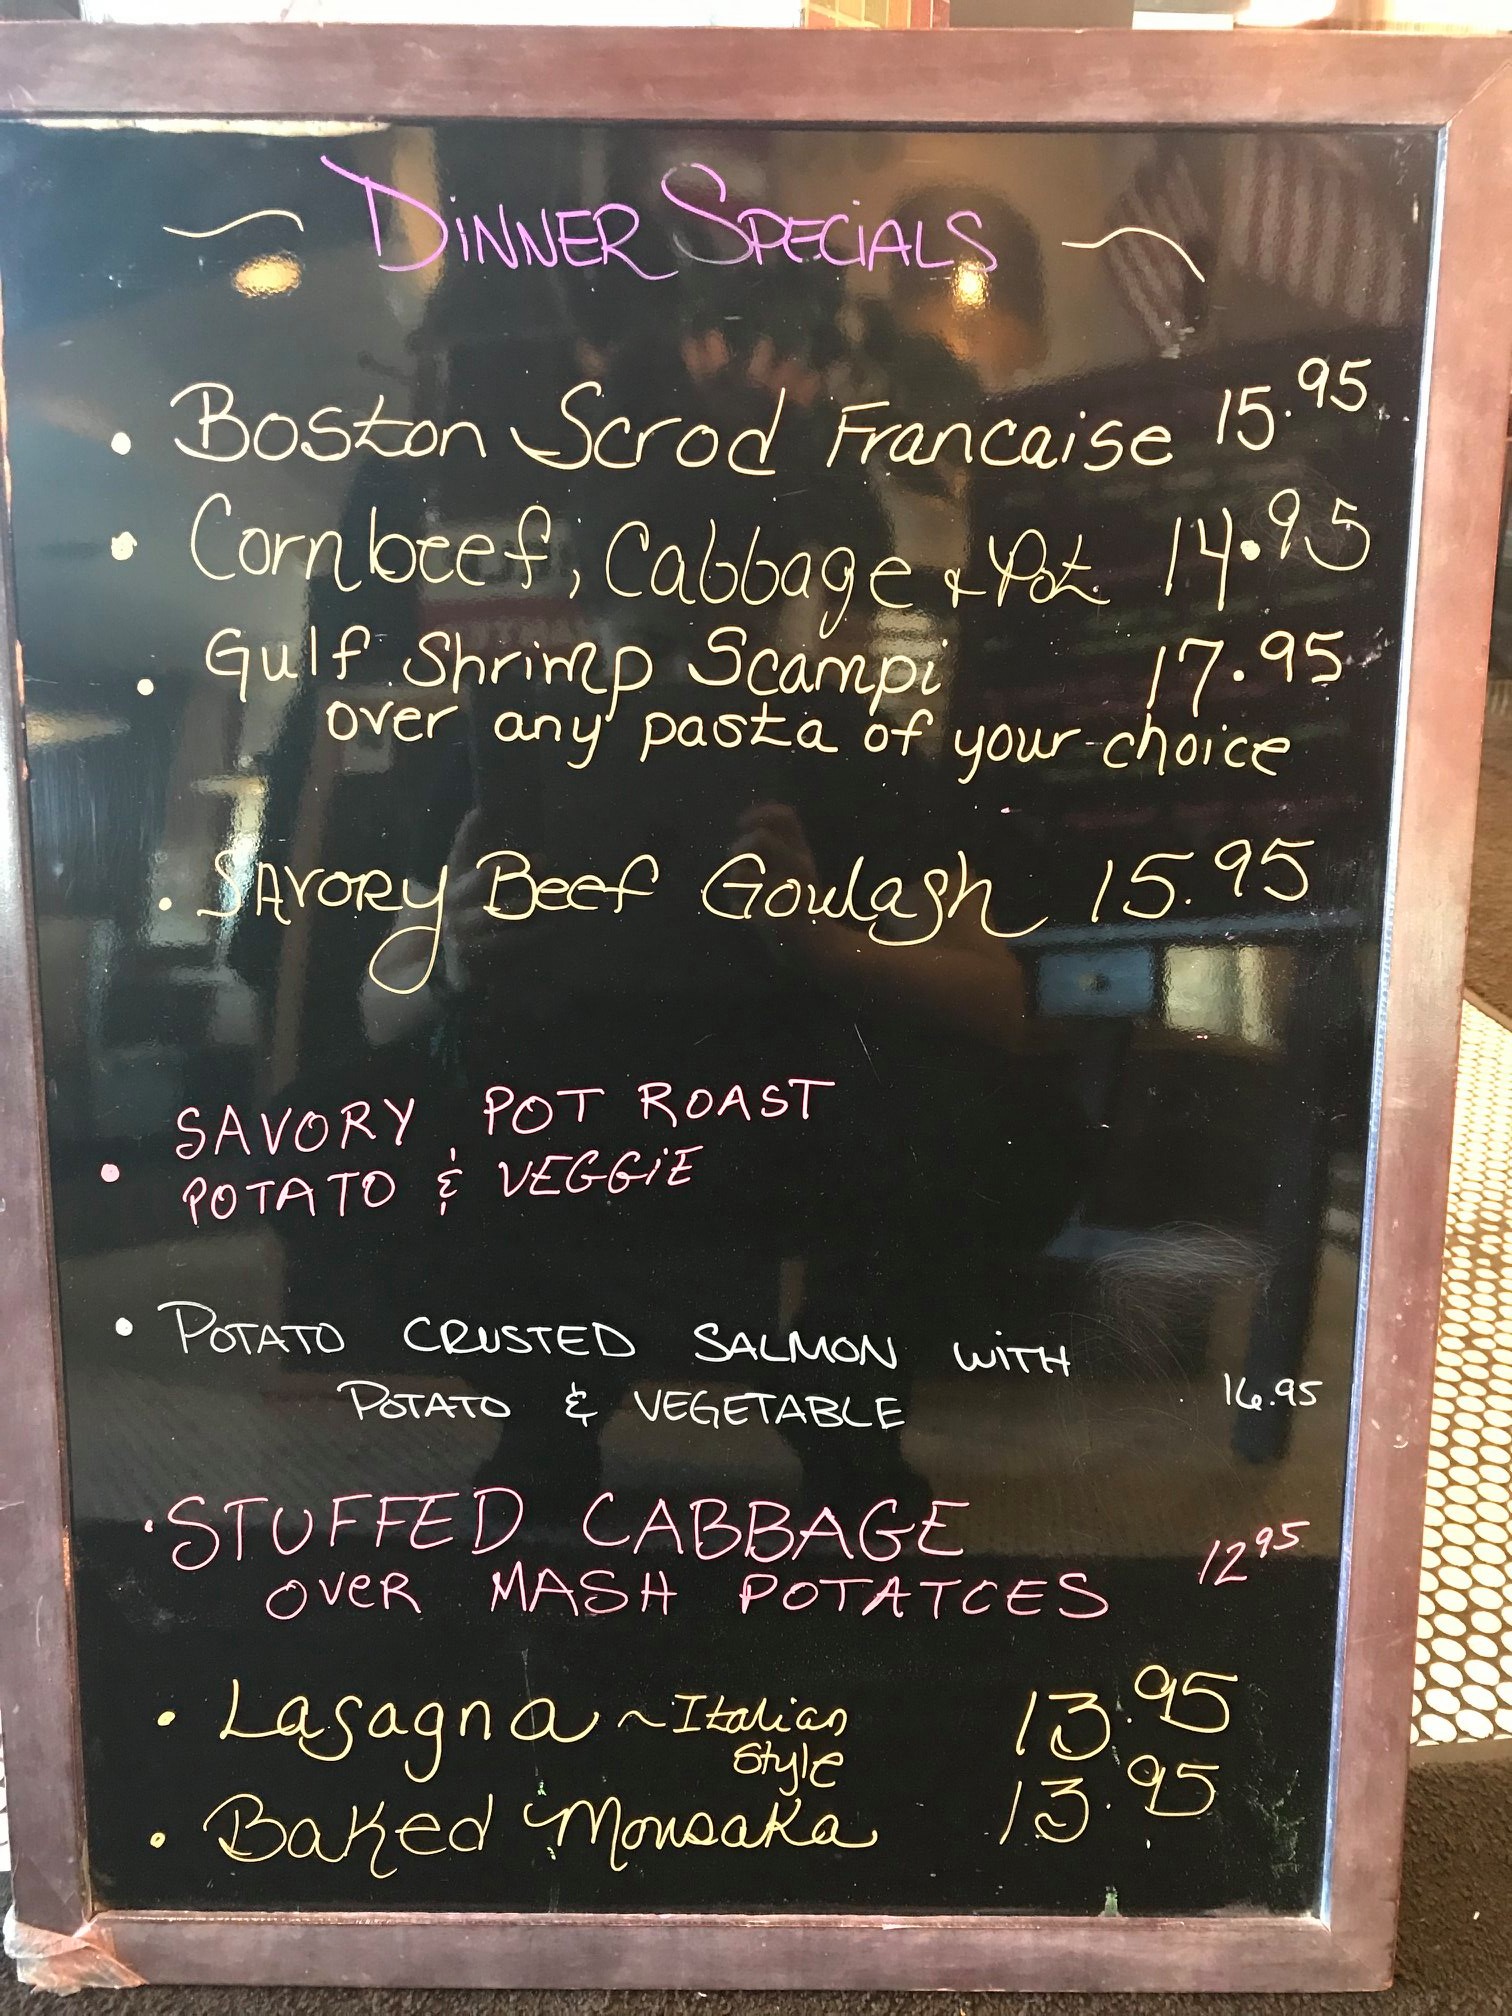 ~ DINNER SPECIALS ~
• Boston Scrod Francaise 15.95
• Cornbeef, Cabbage & Pot. 14.95
• Gulf Shrimp Scampi 17.95
over any pasta of your choice
• SAVORY Beef Goulash 15.95
SAVORY POT ROAST
• POTATO & VEGGiE
• POTATO CRUSTED SALMON WiTH
POTATO & VEGETABLE 16.95
• STUFFED CABBAGE
OVER MASH POTATOES 12.95
• Lasagna ~ Italian 13.95
Style
• Baked Mousaka 13.95